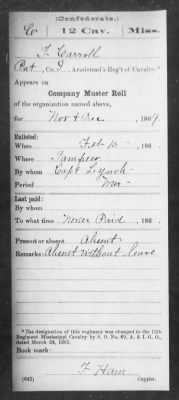 (Confederate.)
C 12 Cav. Miss.
T. Carroll
Pvt, Co. I, Armistead's Reg't of Cavalry*
Appears on
Company Muster Roll
of the organization named above,
for Nov & Dec, 1864.
Enlisted:
When Feb 15, 186 .
Where
By whom Capt Lynch
Period War
Last paid:
By whom
To what time Never Paid, 186 .
Present or absent Absent
Remarks: Absent without leave
* The designation of this regiment was changed to the 12th
Regiment Mississippi Cavalry by S. O. No. 69, A. & I. G. O.,
dated March 24, 1865.
Book mark:
(642) Copyist.